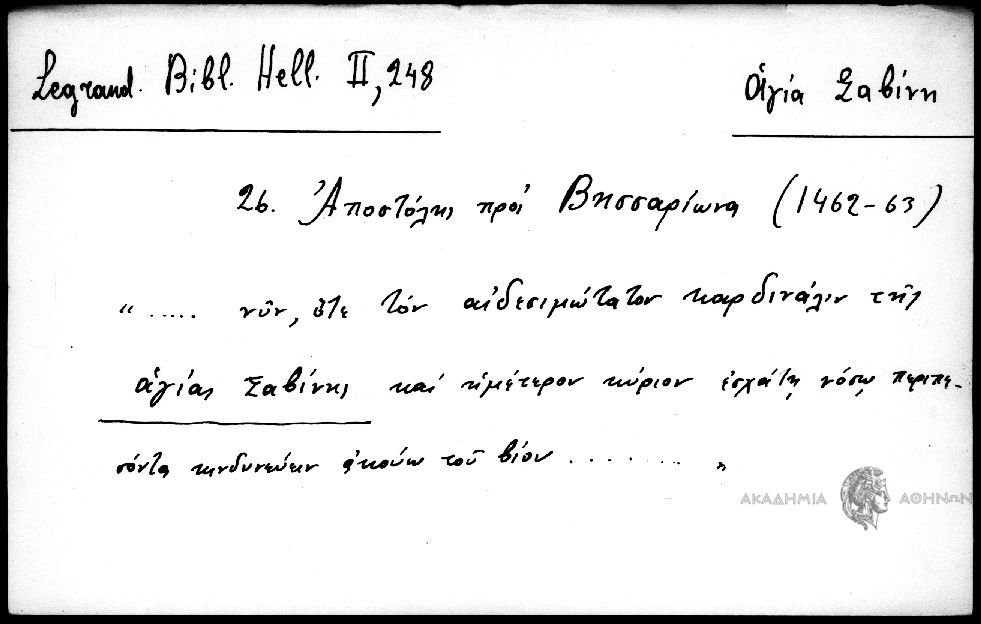 Legrand. Bibl. Hell. II, 248
Ἁγία Σαβίνη
26. Ἀποστόλης πρὸς Βησσαρίωνα (1462-63)
"..... νῦν, ὅτε τὸν αἰδεσιμώτατον καρδινάλιν τῆς
ἁγίας Σαβίνης καὶ ἡμέτερον κύριον ἐσχάτῃ νόσῳ περιπε-
σόντα κινδυνεύειν ἀκούω τοῦ βίου ........"
ΑΚΑΔΗΜΙΑ ΑΘΗΝΩΝ